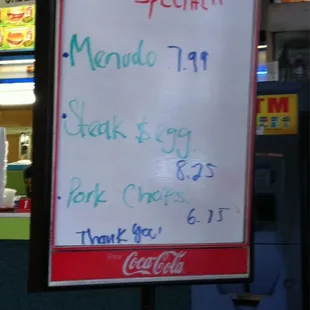 Special
• Menudo 7.99
• Steak $ egg
8.25
• Pork Chops
6.75
Thank You!
Enjoy
Coca-Cola
TM